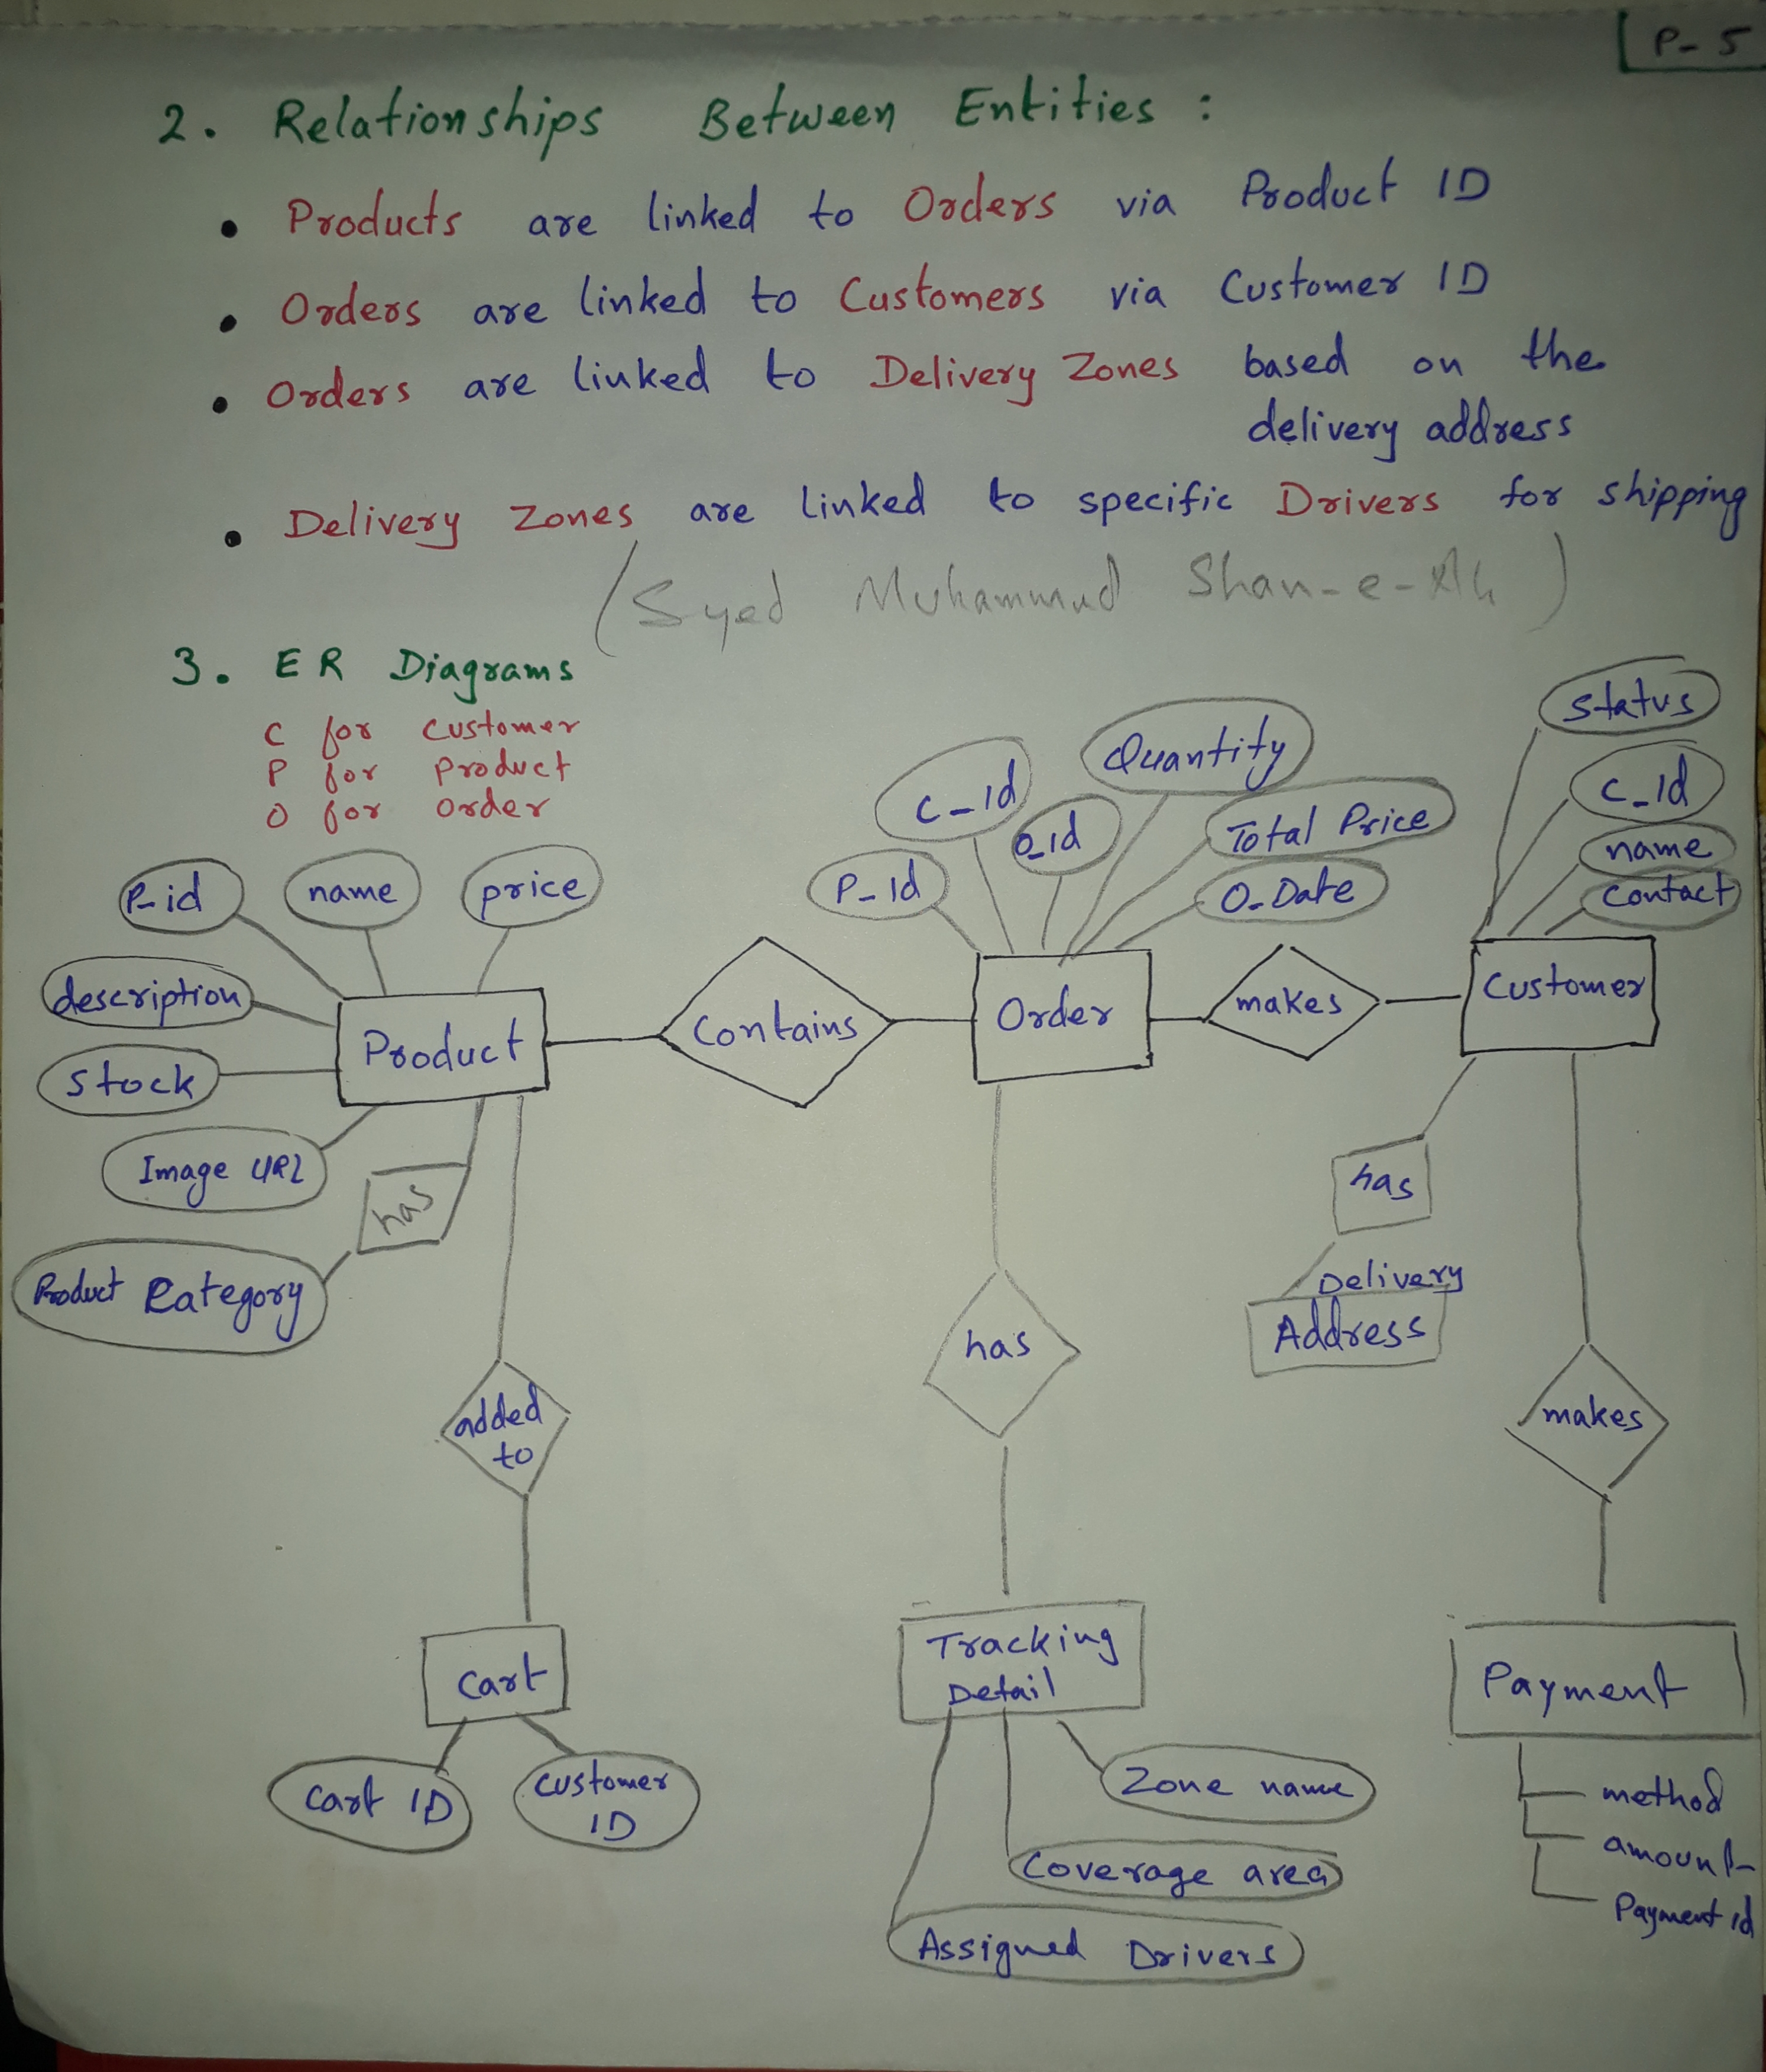 P-5
2. Relationships Between Entities :
• Products are linked to Orders via Product ID
• Orders are linked to Customers via Customer ID
• Orders are linked to Delivery Zones based on the
delivery address
• Delivery Zones are linked to specific Drivers for shipping
(Syed Muhammad Shan-e-Ali)
3. ER Diagrams
C for Customer
P for Product
O for Order
P-id
name
price
description
stock
Image URL
Product Category
has
Product
Contains
P-Id
C-Id
O-id
Quantity
Total Price
O-Date
Order
makes
Status
C-Id
name
Contact
Customer
has
Delivery
Address
makes
added
to
has
Cart
Cart ID
Customer
ID
Tracking
Detail
Zone name
Coverage area
Assigned Drivers
Payment
method
amount
Payment id